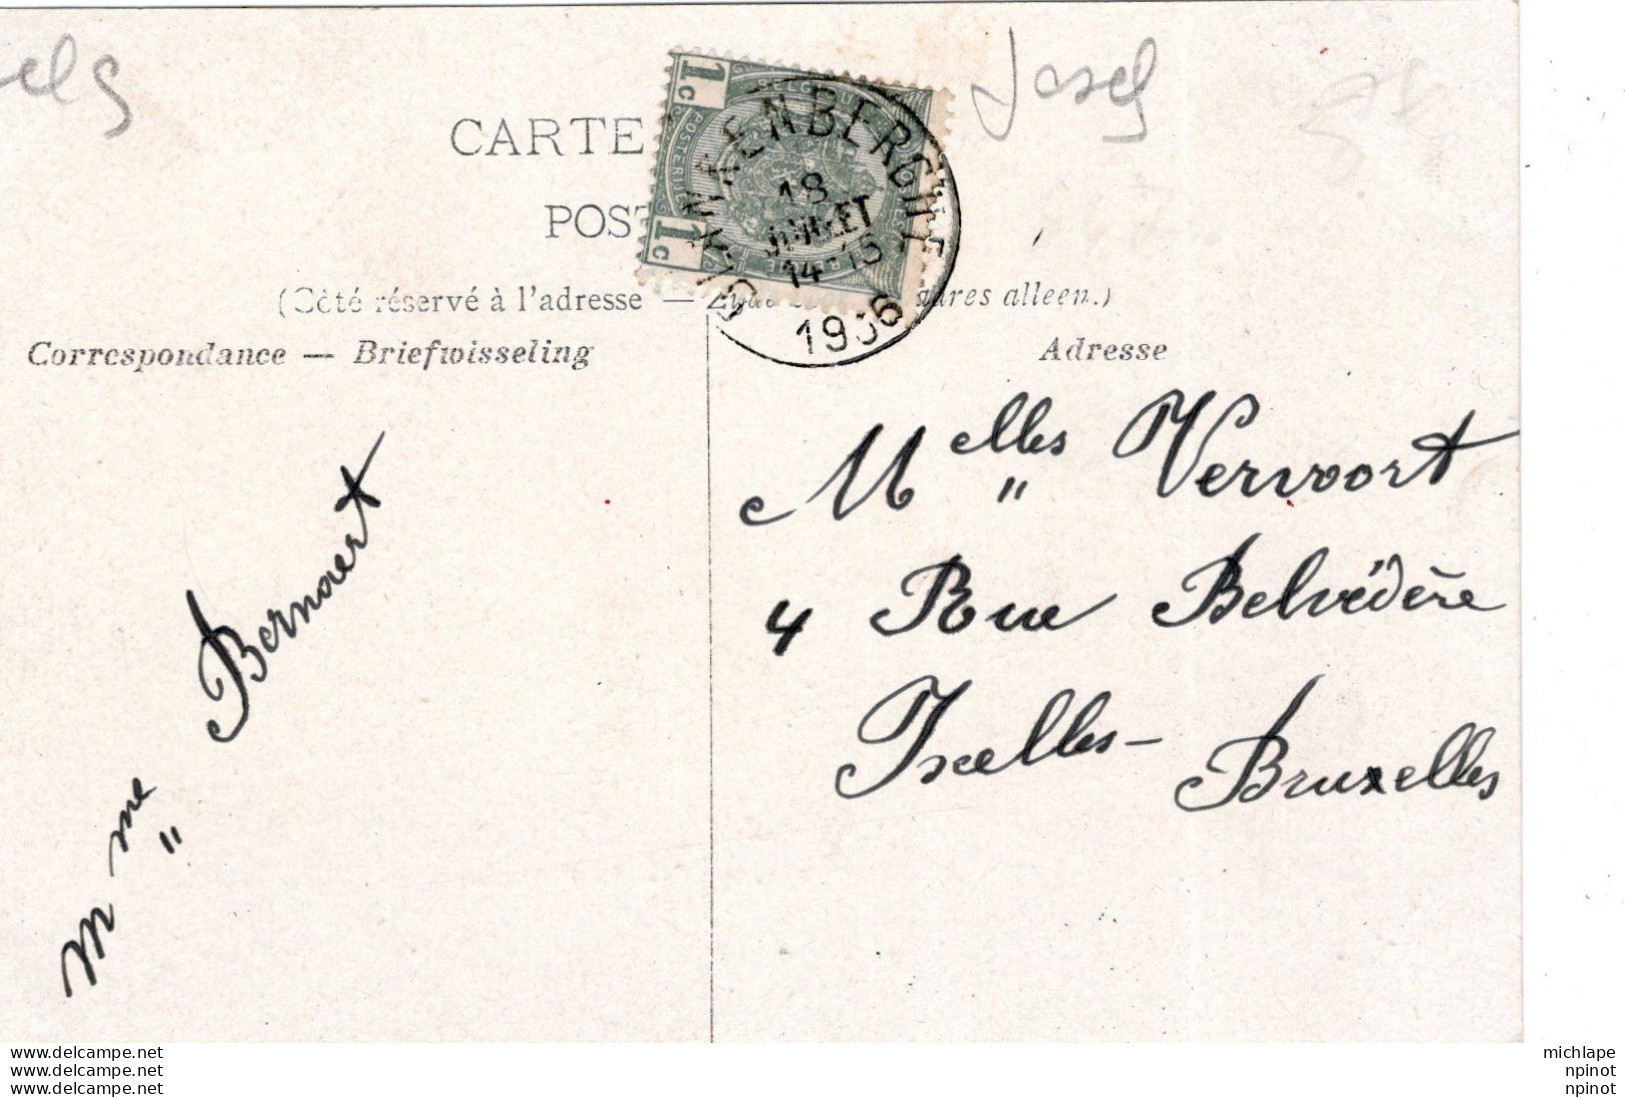 els
Josef
CARTE
POST
1c
1c
BELGIQUE
POSTERIJEN
BLANKENBERGHE
18
JUILLET
14-15
1906
(Côté réservé à l'adresse — Zijde adres alleen.)
Correspondance — Briefwisseling
Adresse
Melles Vervoort
4 Rue Belvédère
Ixelles-Bruxelles
Mme Bernaert
www.delcampe.net
www.delcampe.net
www.delcampe.net
michlape
npinot
npinot